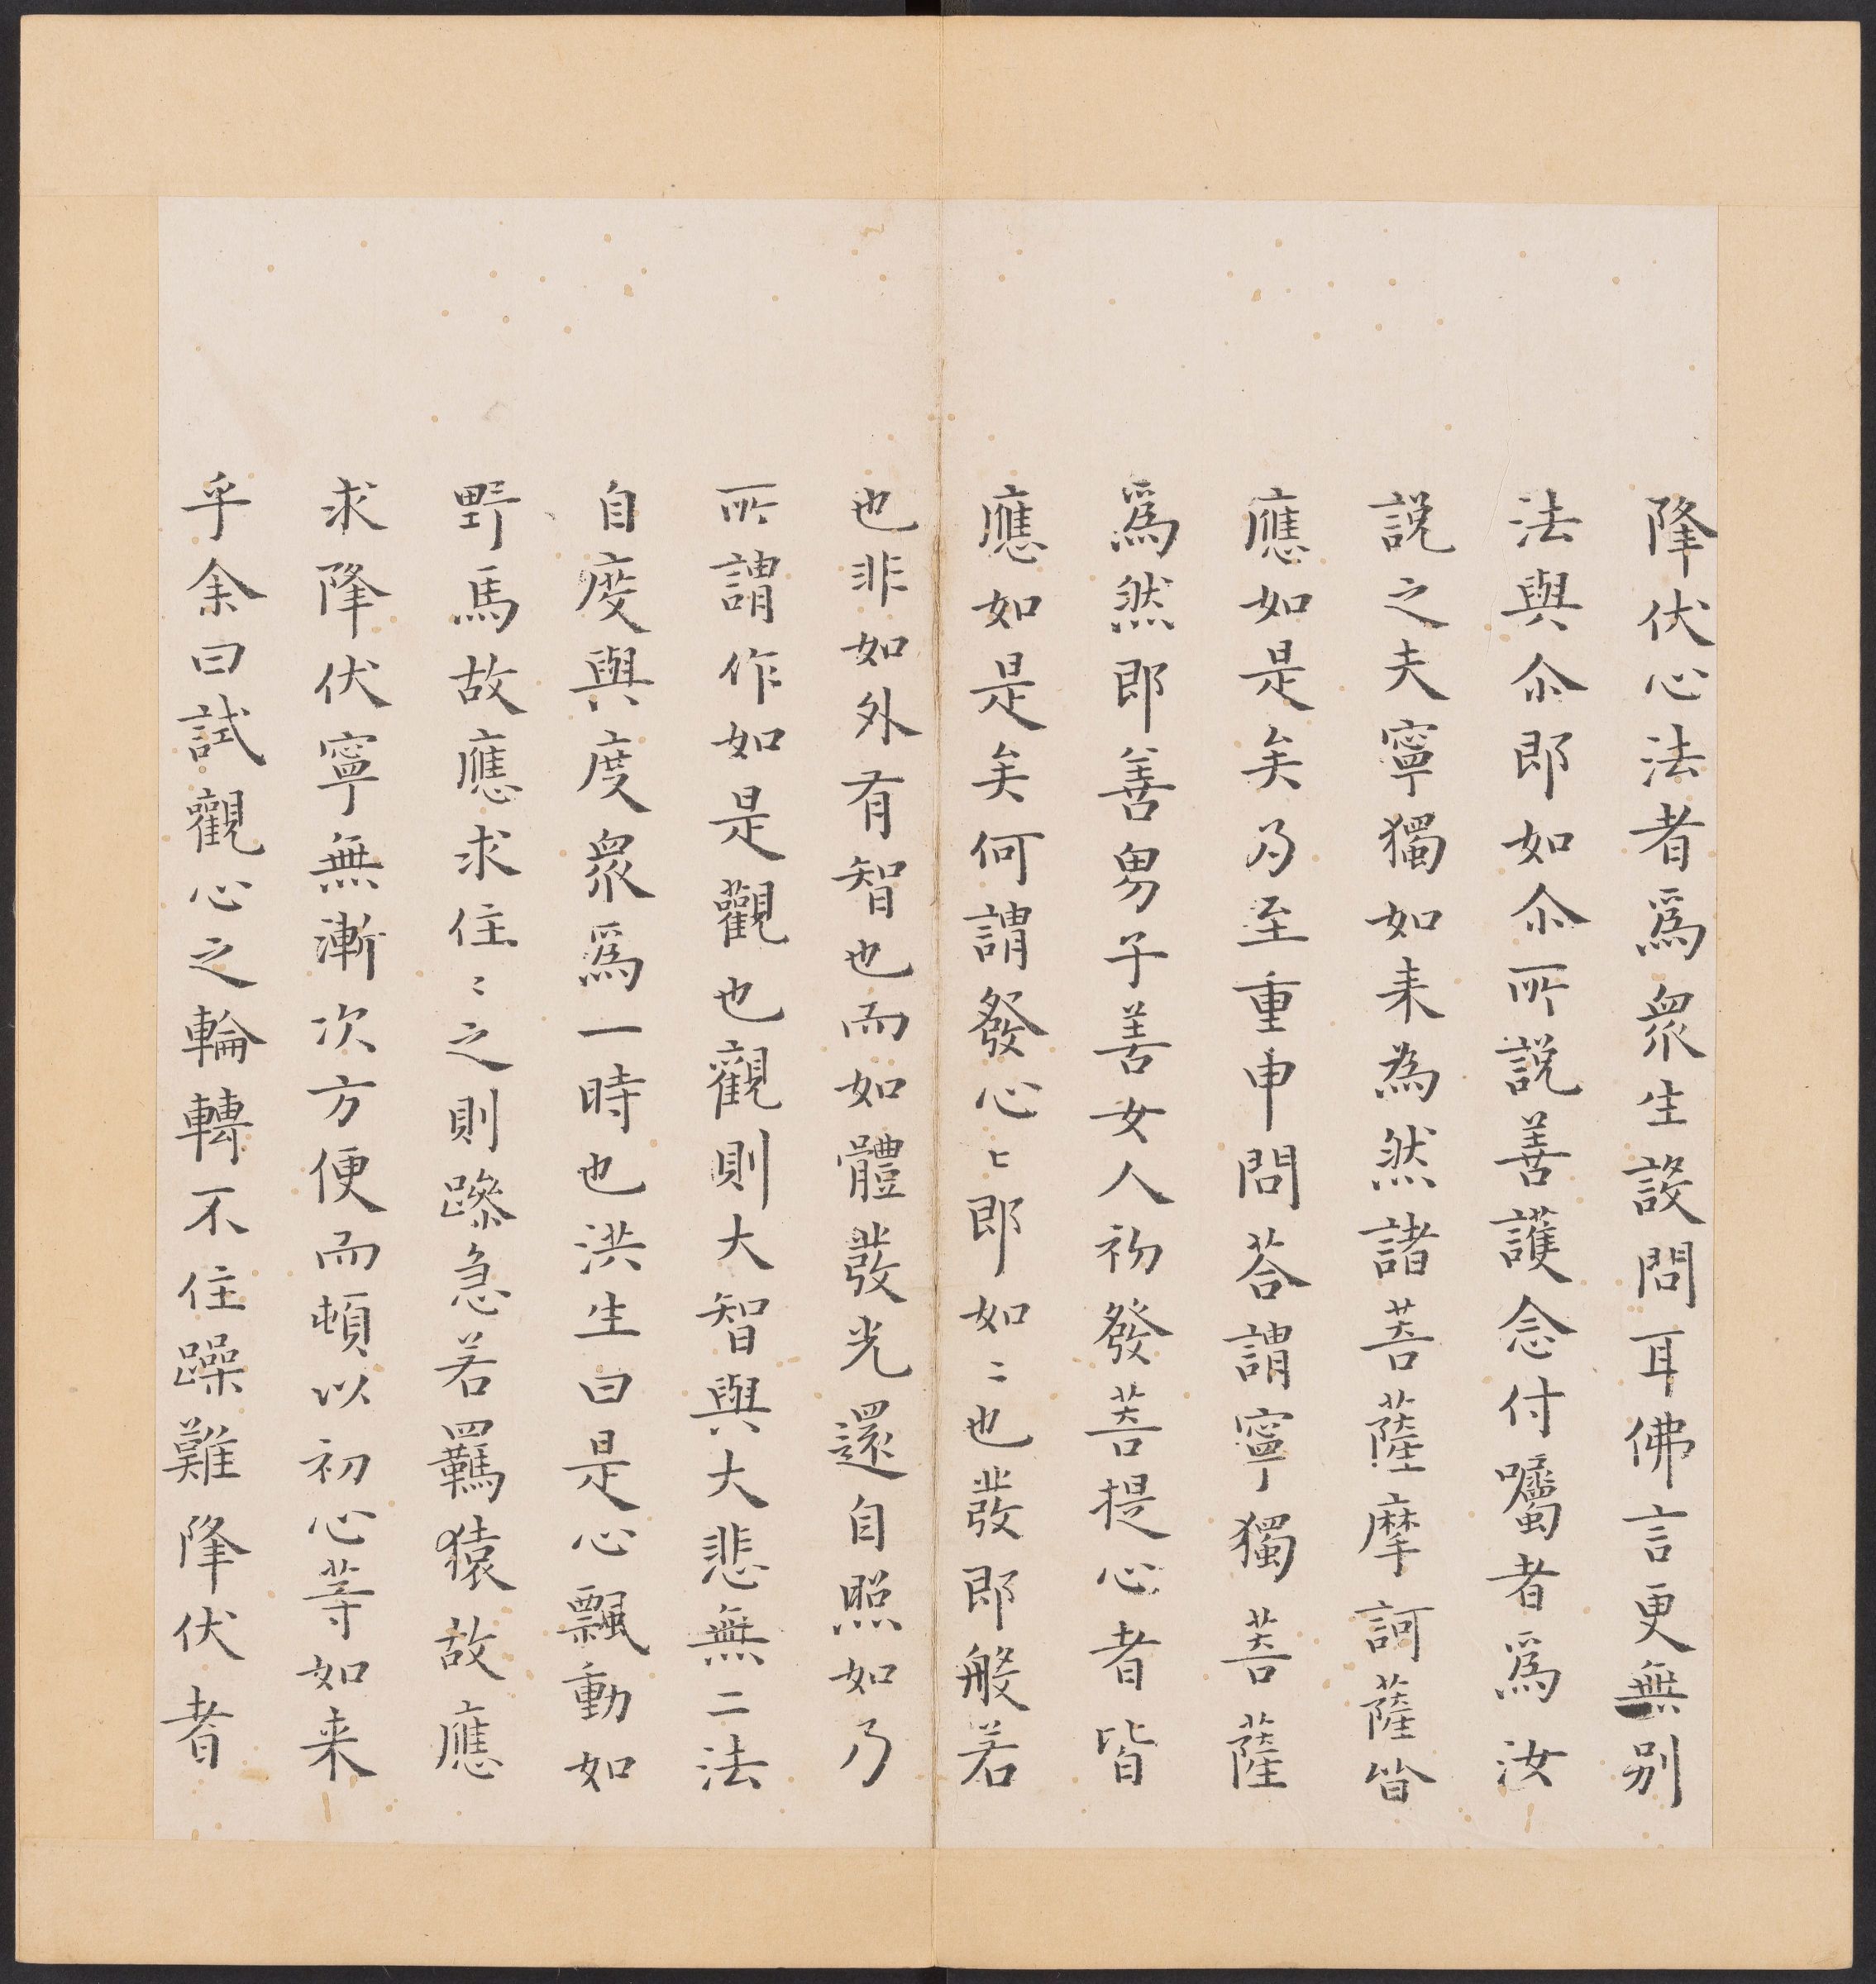 降伏心法者爲衆生設問耳佛言更無别
法與尒即如尒所説善護念付囑者爲汝
説之夫寧獨如来為然諸菩薩摩訶薩皆
應如是矣乃至重申問荅謂寧獨菩薩
爲然即善男子善女人初發菩提心者皆
應如是矣何謂發心〻即如〻也發即般若
也非如外有智也而如體發光還自照如乃
所謂作如是觀也觀則大智與大悲無二法
自度與度衆爲一時也洪生曰是心飄動如
野馬故應求住〻之則躁急若羈猿故應
求降伏寧無漸次方便而頓以初心等如来
乎余曰試觀心之輪轉不住躁難降伏者